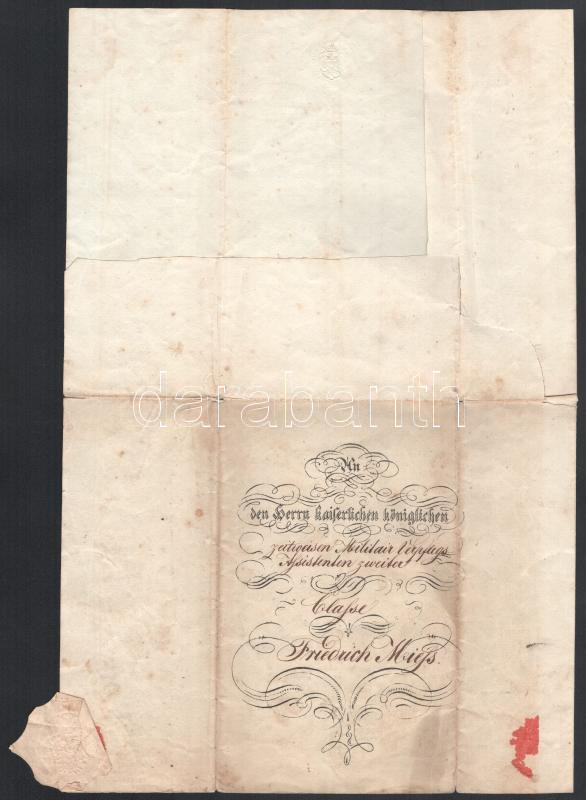 An
den Herrn kaiserlichen königlichen
zeitweisen Militair Verpflegs
Assistenten zweiter
Classe
Friedrich Mieß.
darabanth